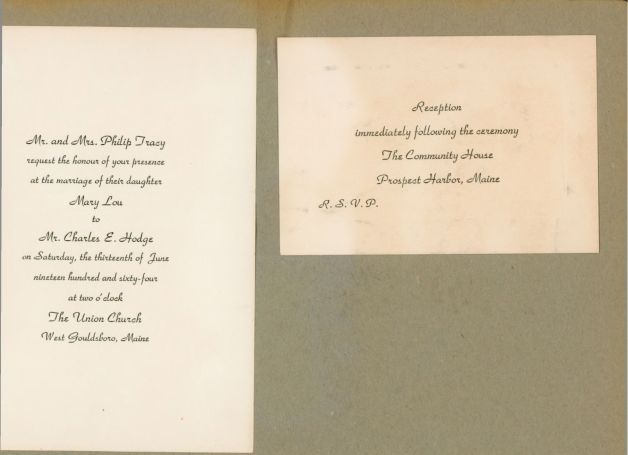 Mr. and Mrs. Philip Tracy
request the honour of your presence
at the marriage of their daughter
Mary Lou
to
Mr. Charles E. Hodge
on Saturday, the thirteenth of June
nineteen hundred and sixty-four
at two o'clock
The Union Church
West Gouldsboro, Maine
Reception
immediately following the ceremony
The Community House
Prospect Harbor, Maine
R. S. V. P.